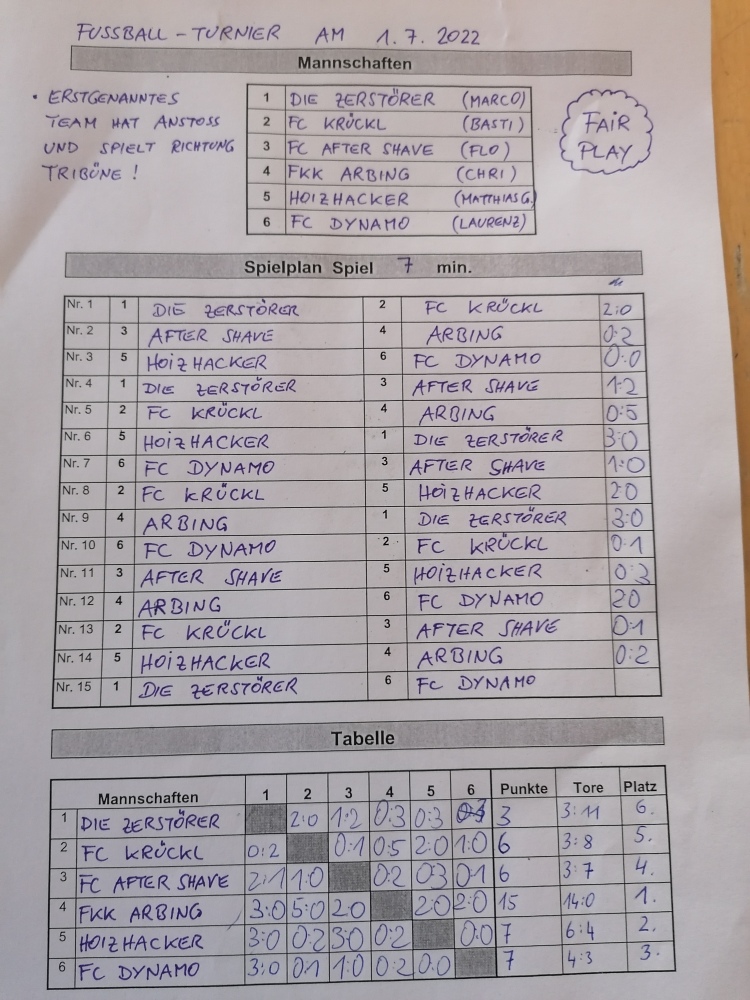 FUSSBALL - TURNIER AM 1.7.2022
Mannschaften
• ERSTGENANNTES
TEAM HAT ANSTOSS
UND SPIELT RICHTUNG
TRIBÜNE !
1 DIE ZERSTÖRER (MARCO)
2 FC KRÜCKL (BASTI)
3 FC AFTER SHAVE (FLO)
4 FKK ARBING (CHRI)
5 HOIZHACKER (MATTHIAS G.)
6 FC DYNAMO (LAURENZ)
FAIR
PLAY
Spielplan Spiel 7 min.
Nr. 1 1 DIE ZERSTÖRER 2 FC KRÜCKL 2:0
Nr. 2 3 AFTER SHAVE 4 ARBING 0:2
Nr. 3 5 HOIZHACKER 6 FC DYNAMO 0:0
Nr. 4 1 DIE ZERSTÖRER 3 AFTER SHAVE 1:2
Nr. 5 2 FC KRÜCKL 4 ARBING 0:5
Nr. 6 5 HOIZHACKER 1 DIE ZERSTÖRER 3:0
Nr. 7 6 FC DYNAMO 3 AFTER SHAVE 1:0
Nr. 8 2 FC KRÜCKL 5 HOIZHACKER 2:0
Nr. 9 4 ARBING 1 DIE ZERSTÖRER 3:0
Nr. 10 6 FC DYNAMO 2 FC KRÜCKL 0:1
Nr. 11 3 AFTER SHAVE 5 HOIZHACKER 0:3
Nr. 12 4 ARBING 6 FC DYNAMO 2:0
Nr. 13 2 FC KRÜCKL 3 AFTER SHAVE 0:1
Nr. 14 5 HOIZHACKER 4 ARBING 0:2
Nr. 15 1 DIE ZERSTÖRER 6 FC DYNAMO
Tabelle
Mannschaften 1 2 3 4 5 6 Punkte Tore Platz
1 DIE ZERSTÖRER 2:0 1:2 0:3 0:3 3 3:11 6.
2 FC KRÜCKL 0:2 0:1 0:5 2:0 1:0 6 3:8 5.
3 FC AFTER SHAVE 2:1 1:0 0:2 0:3 0:1 6 3:7 4.
4 FKK ARBING 3:0 5:0 2:0 2:0 2:0 15 14:0 1.
5 HOIZHACKER 3:0 0:2 3:0 0:2 0:0 7 6:4 2.
6 FC DYNAMO 3:0 0:1 1:0 0:2 0:0 7 4:3 3.